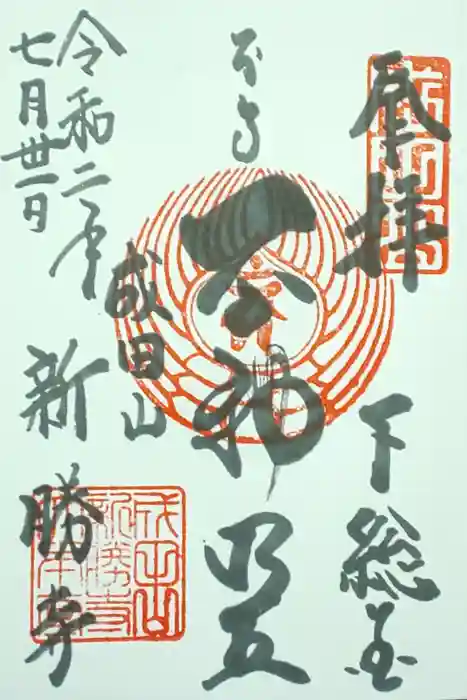 奉拝
下総国
不動明王
成田山
新勝寺
令和二年
七月卅一日
成田山
新勝寺